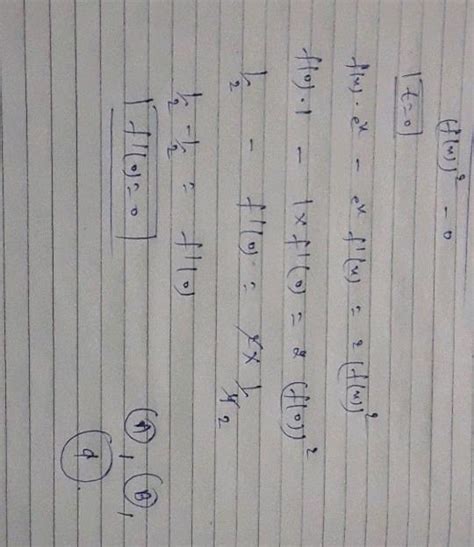 (f(x))² - 0
t=0
f(x)·eˣ - eˣ f'(x) = 2 (f(x))²
f(0)·1 - 1 × f'(0) = 2 (f(0))²
1/2 - f'(0) = 2 × 1/4 2
1/2 - 1/2 = f'(0)
f'(0) = 0
(A), (B),
(d).